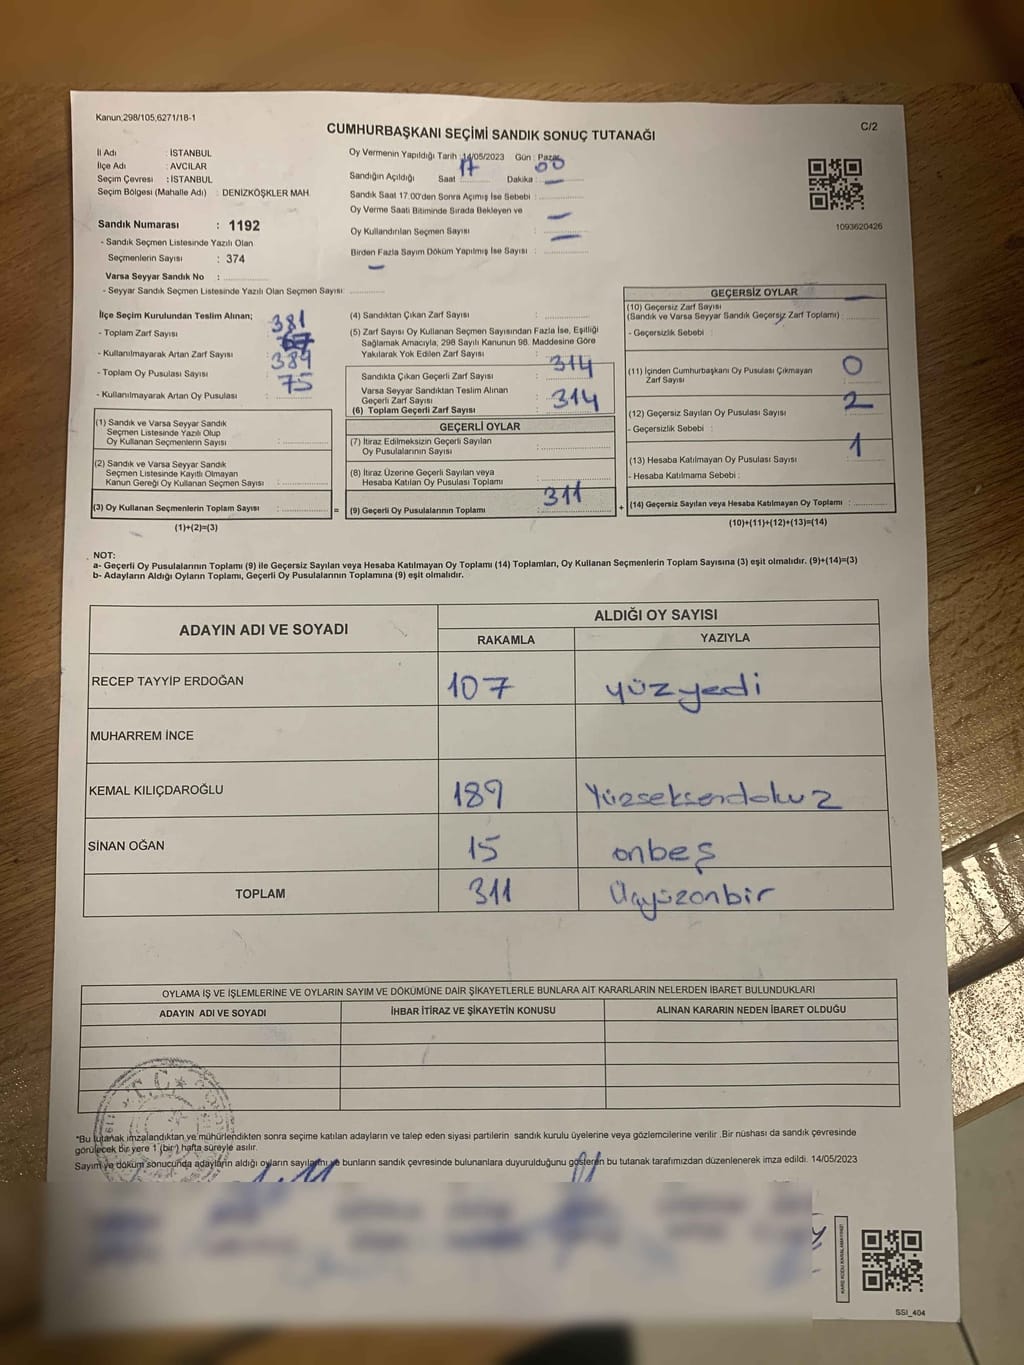 Kanun,298/105,6271/18-1
CUMHURBAŞKANI SEÇİMİ SANDIK SONUÇ TUTANAĞI
C/2
İl Adı : İSTANBUL
İlçe Adı : AVCILAR
Seçim Çevresi : İSTANBUL
Seçim Bölgesi (Mahalle Adı) : DENİZKÖŞKLER MAH.
Oy Vermenin Yapıldığı Tarih : 14/05/2023 Gün : Pazar
Sandığın Açıldığı Saat 17 Dakika : 00
Sandık Saat 17.00'den Sonra Açımış İse Sebebi : —
Oy Verme Saati Bitiminde Sırada Bekleyen ve
Oy Kullandırılan Seçmen Sayısı : —
Birden Fazla Sayım Döküm Yapılmış İse Sayısı : —
—
1093620426
Sandık Numarası : 1192
- Sandık Seçmen Listesinde Yazılı Olan
Seçmenlerin Sayısı : 374
Varsa Seyyar Sandık No :
- Seyyar Sandık Seçmen Listesinde Yazılı Olan Seçmen Sayısı:
İlçe Seçim Kurulundan Teslim Alınan;
- Toplam Zarf Sayısı : 381
- Kullanılmayarak Artan Zarf Sayısı : 67
- Toplam Oy Pusulası Sayısı : 389
- Kullanılmayarak Artan Oy Pusulası : 75
(1) Sandık ve Varsa Seyyar Sandık
Seçmen Listesinde Yazılı Olup
Oy Kullanan Seçmenlerin Sayısı :
(2) Sandık ve Varsa Seyyar Sandık
Seçmen Listesinde Kayıtlı Olmayan
Kanun Gereği Oy Kullanan Seçmen Sayısı :
(3) Oy Kullanan Seçmenlerin Toplam Sayısı : =
(1)+(2)=(3)
(4) Sandıktan Çıkan Zarf Sayısı :
(5) Zarf Sayısı Oy Kullanan Seçmen Sayısından Fazla İse, Eşitliği
Sağlamak Amacıyla, 298 Sayılı Kanunun 98. Maddesine Göre
Yakılarak Yok Edilen Zarf Sayısı :
Sandıkta Çıkan Geçerli Zarf Sayısı : 314
Varsa Seyyar Sandıktan Teslim Alınan
Geçerli Zarf Sayısı :
(6) Toplam Geçerli Zarf Sayısı : 314
GEÇERLİ OYLAR
(7) İtiraz Edilmeksizin Geçerli Sayılan
Oy Pusulalarının Sayısı :
(8) İtiraz Üzerine Geçerli Sayılan veya
Hesaba Katılan Oy Pusulası Toplamı :
(9) Geçerli Oy Pusulalarının Toplamı : 311 +
GEÇERSİZ OYLAR
(10) Geçersiz Zarf Sayısı
(Sandık ve Varsa Seyyar Sandık Geçersiz Zarf Toplamı) : —
- Geçersizlik Sebebi :
(11) İçinden Cumhurbaşkanı Oy Pusulası Çıkmayan
Zarf Sayısı : 0
(12) Geçersiz Sayılan Oy Pusulası Sayısı : 2
- Geçersizlik Sebebi :
(13) Hesaba Katılmayan Oy Pusulası Sayısı : 1
- Hesaba Katılmama Sebebi :
(14) Geçersiz Sayılan veya Hesaba Katılmayan Oy Toplamı :
(10)+(11)+(12)+(13)=(14)
NOT:
a- Geçerli Oy Pusulalarının Toplamı (9) ile Geçersiz Sayılan veya Hesaba Katılmayan Oy Toplamı (14) Toplamları, Oy Kullanan Seçmenlerin Toplam Sayısına (3) eşit olmalıdır. (9)+(14)=(3)
b- Adayların Aldığı Oyların Toplamı, Geçerli Oy Pusulalarının Toplamına (9) eşit olmalıdır.
ADAYIN ADI VE SOYADI
ALDIĞI OY SAYISI
RAKAMLA YAZIYLA
RECEP TAYYİP ERDOĞAN 107 yüzyedi
MUHARREM İNCE
KEMAL KILIÇDAROĞLU 189 Yüzseksendokuz
SİNAN OĞAN 15 onbeş
TOPLAM 311 Üçyüzonbir
OYLAMA İŞ VE İŞLEMLERİNE VE OYLARIN SAYIM VE DÖKÜMÜNE DAİR ŞİKAYETLERLE BUNLARA AİT KARARLARIN NELERDEN İBARET BULUNDUKLARI
ADAYIN ADI VE SOYADI İHBAR İTİRAZ VE ŞİKAYETİN KONUSU ALINAN KARARIN NEDEN İBARET OLDUĞU
T.C.
*Bu tutanak imzalandıktan ve mühürlendikten sonra seçime katılan adayların ve talep eden siyasi partilerin sandık kurulu üyelerine veya gözlemcilerine verilir .Bir nüshası da sandık çevresinde
görülecek bir yere 1 (bir) hafta süreyle asılır.
Sayım ve döküm sonucunda adayların aldığı oyların sayılarını ve bunların sandık çevresinde bulunanlara duyurulduğunu gösteren bu tutanak tarafımızdan düzenlenerek imza edildi. 14/05/2023
KARE KODU KARALAMAYINIZ!
SSI_404